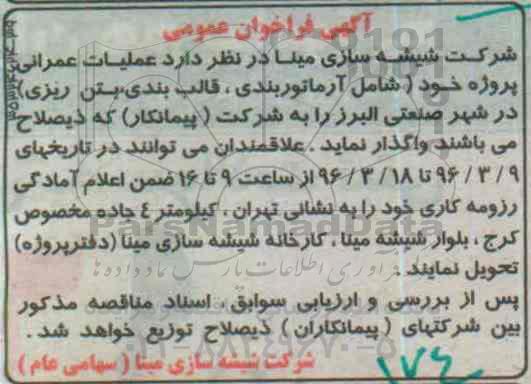 آگهی فراخوان عمومی
شرکت شیشه سازی مینا در نظر دارد عملیات عمرانی
پروژه خود ( شامل آرماتوربندی ، قالب بندی،بتن ریزی)
در شهر صنعتی البرز را به شرکت ( پیمانکار) که ذیصلاح
می باشند واگذار نماید . علاقمندان می توانند در تاریخهای
۹ / ۳ / ۹۶ تا ۱۸ / ۳ / ۹۶ از ساعت ۹ تا ۱۶ ضمن اعلام آمادگی
رزومه کاری خود را به نشانی تهران ، کیلومتر ٤ جاده مخصوص
کرج ، بلوار شیشه مینا ، کارخانه شیشه سازی مینا (دفترپروژه)
تحویل نمایند .
پس از بررسی و ارزیابی سوابق ، اسناد مناقصه مذکور
بین شرکتهای ( پیمانکاران ) ذیصلاح توزیع خواهد شد .
شرکت شیشه سازی مینا ( سهامی عام )
ParsNamadData
فرآوری اطلاعات پارس نماد داده ها
۰۲۱-۸۸۳۴۹۶۷۰-۵